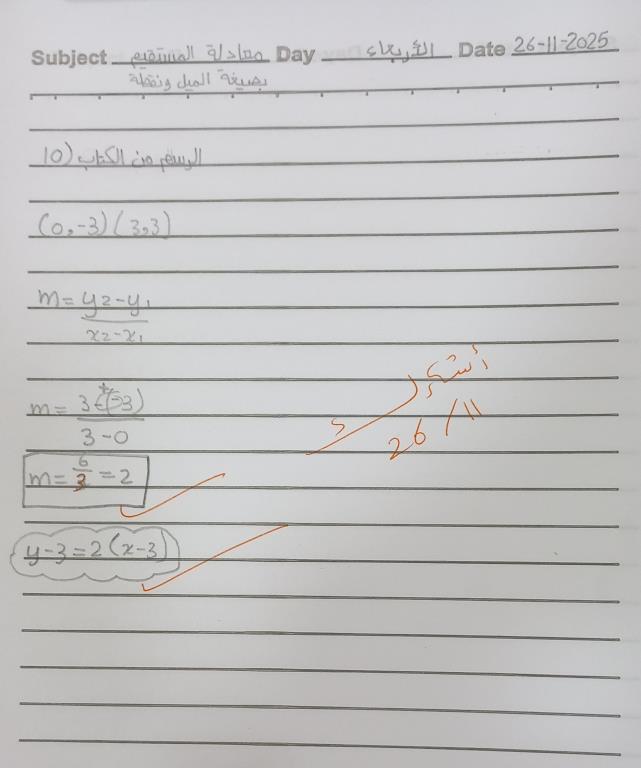 Subject معادلة المستقيم Day الأربعاء Date 26-11-2025
بصيغة الميل ونقطة
10) الرسم من الكتاب
(0,-3) (3,3)
m = y2-y1 / x2-x1
m = 3-(-3) / 3-0
m = 6/3 = 2
y-3=2(x-3)
26/11